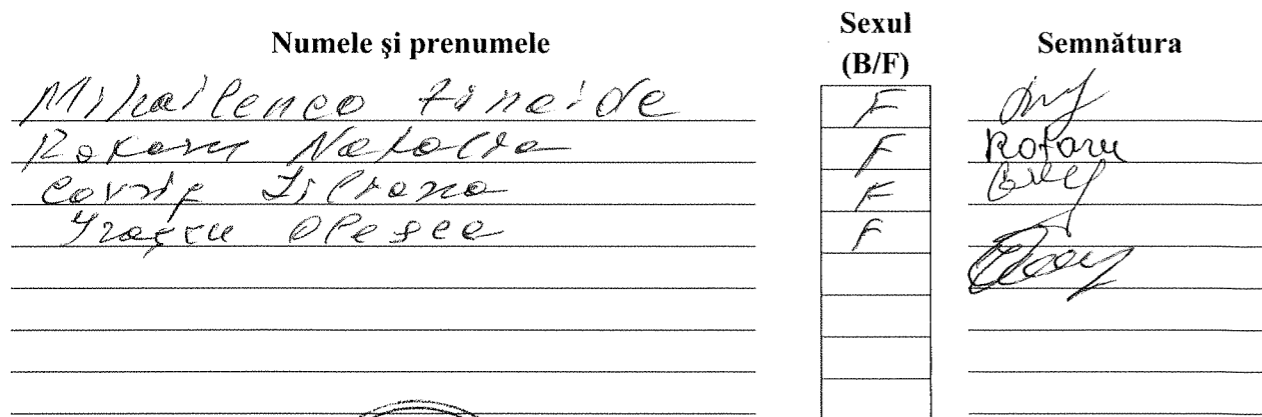 Numele şi prenumele Sexul (B/F) Semnătura
Mihailenco Zinaida F
Rotaru Natalia F Rotaru
Covrig Liliana F
Olesea F